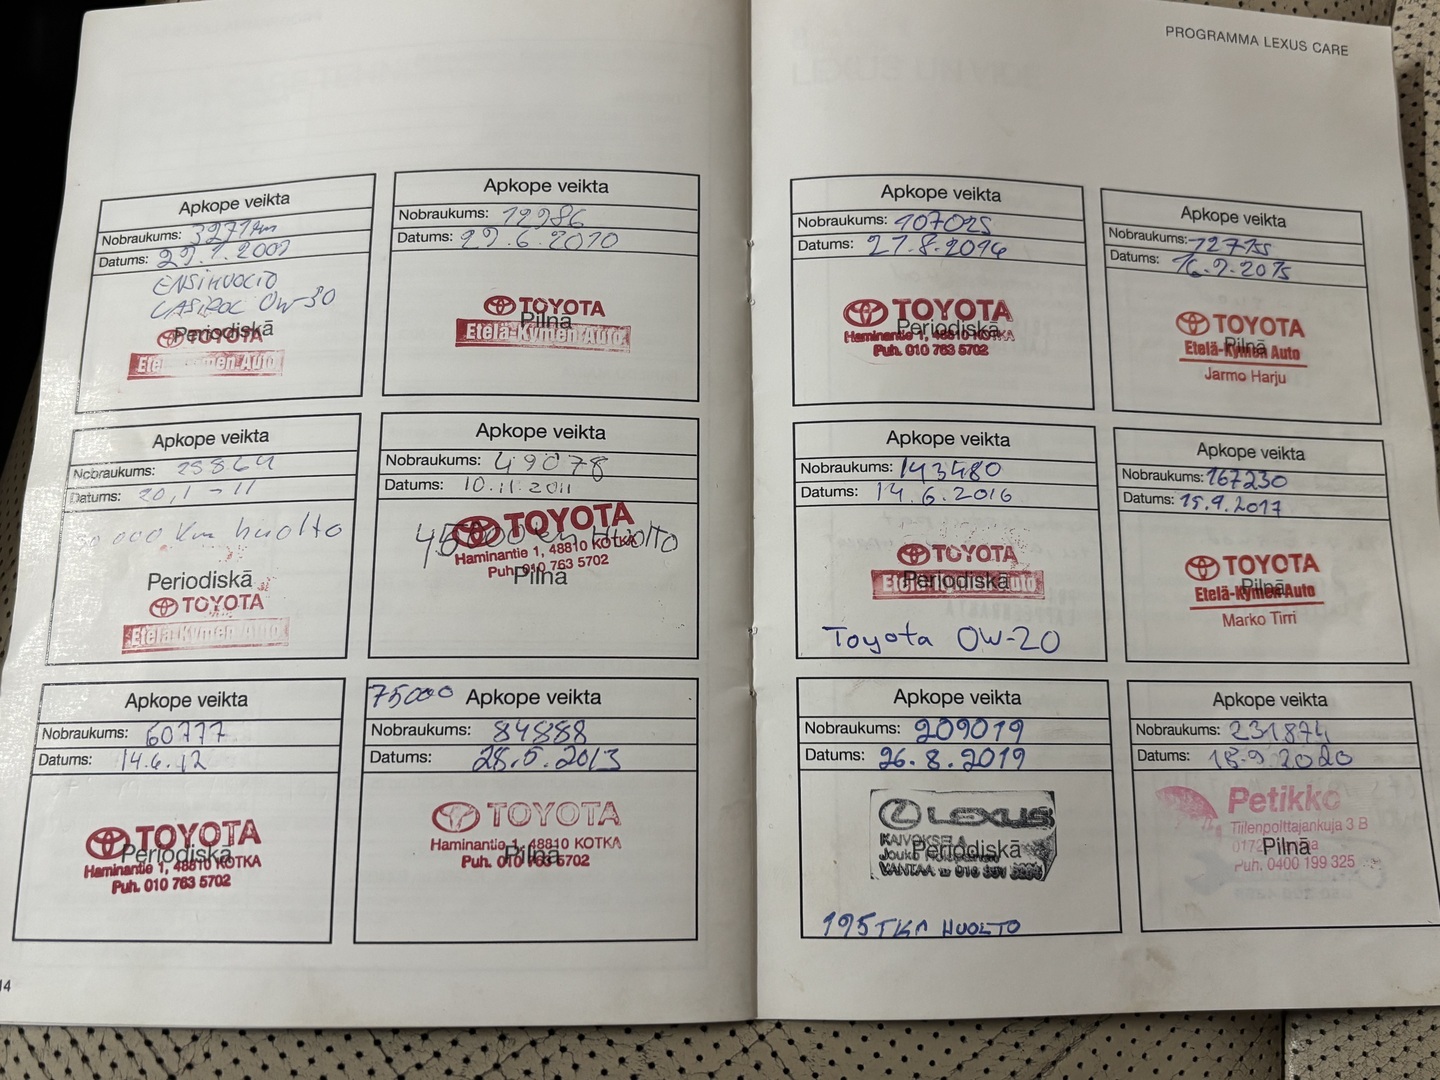 PROGRAMMA LEXUS CARE
Apkope veikta
Nobraukums: 3271km
Datums: 29.7.2009
ENSIHUOLTO
CASTROL 0W-30
Periodiskā
TOYOTA
Etelä-Kymen Auto
Apkope veikta
Nobraukums: 19986
Datums: 29.6.2010
TOYOTA
Pilnā
Etelä-Kymen Auto
Apkope veikta
Nobraukums: 28864
Datums: 20,1-11
30 000 km huolto
Periodiskā
TOYOTA
Etelä-Kymen Auto
Apkope veikta
Nobraukums: 49078
Datums: 10.11.2011
TOYOTA
45000 km Huolto
Haminantie 1, 48810 KOTKA
Puh. 010 763 5702
Pilnā
Apkope veikta
Nobraukums: 60777
Datums: 14.6.12
TOYOTA
Periodiskā
Haminantie 1, 48810 KOTKA
Puh. 010 763 5702
75000 Apkope veikta
Nobraukums: 84888
Datums: 28.5.2013
TOYOTA
Haminantie 1, 48810 KOTKA
Puh. 010 763 5702
Pilnā
14
Apkope veikta
Nobraukums: 107025
Datums: 21.8.2014
TOYOTA
Periodiskā
Haminantie 1, 48810 KOTKA
Puh. 010 763 5702
Apkope veikta
Nobraukums:
Datums: 16.9.2015
TOYOTA
Pilnā
Etelä-Kymen Auto
Jarmo Harju
Apkope veikta
Nobraukums: 143480
Datums: 14.6.2016
TOYOTA
Periodiskā
Etelä-Kymen Auto
Toyota 0W-20
Apkope veikta
Nobraukums: 167230
Datums: 15.9.2017
TOYOTA
Pilnā
Etelä-Kymen Auto
Marko Tirri
Apkope veikta
Nobraukums: 209019
Datums: 26.8.2019
LEXUS
KAIVOKSELA
Jouko
Periodiskā
VANTAA
195TKM HUOLTO
Apkope veikta
Nobraukums: 231874
Datums: 18.9.2020
Petikko
Tiilenpolttajankuja 3 B
Pilnā
Puh. 0400 199 325